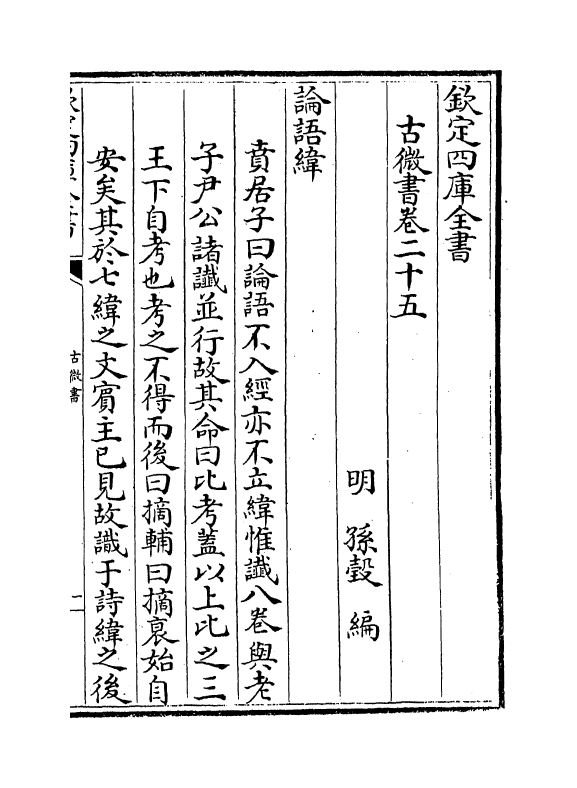 欽定四庫全書
古微書卷二十五
明 孫瑴 編
論語緯
賁居子曰論語不入經亦不立緯惟讖八卷與老
子尹公諸讖並行故其命曰比考蓋以上比之三
王下自考也考之不得而後曰摘輔曰摘裒始自
安矣其於七緯之文賓主已見故識于詩緯之後
古微書